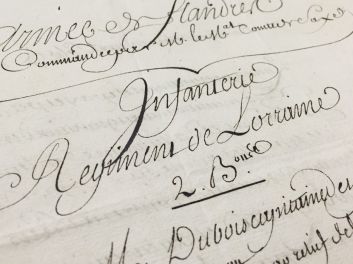 Armée de Flandres
Commandée par M. le M.al Comte de Saxe
Infanterie
Regiment de Lorraine
2. B.ons
Dubois capitaine
relief de